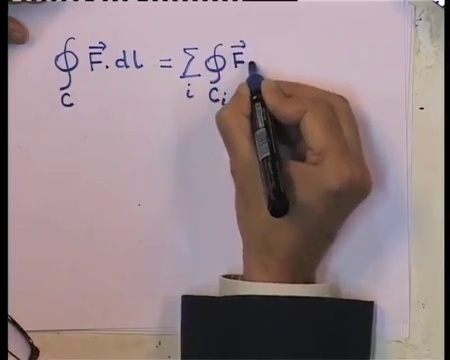 ∮_C F⃗.dl = ∑_i ∮_{C_i} F⃗.